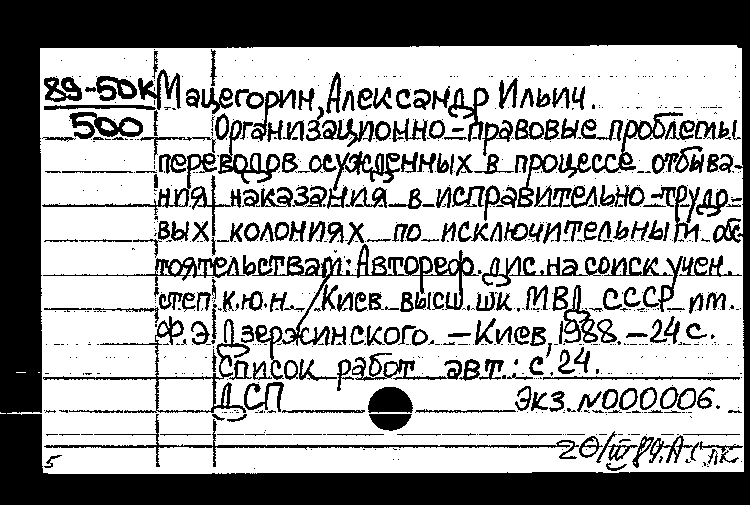 89-50к Мацегорин, Александр Ильич.
500 Организационно-правовые проблемы
переводов осужденных в процессе отбыва-
ния наказания в исправительно-трудо-
вых колониях по исключительным обс-
тоятельствам: Автореф. дис. на соиск. учен.
степ. к.ю.н. / Киев. высш. шк. МВД СССР им.
Ф.Э. Дзержинского. - Киев, 1988. - 24 с.
Список работ авт.: с. 24.
ДСП Экз. N000006.
20/III 89.
5